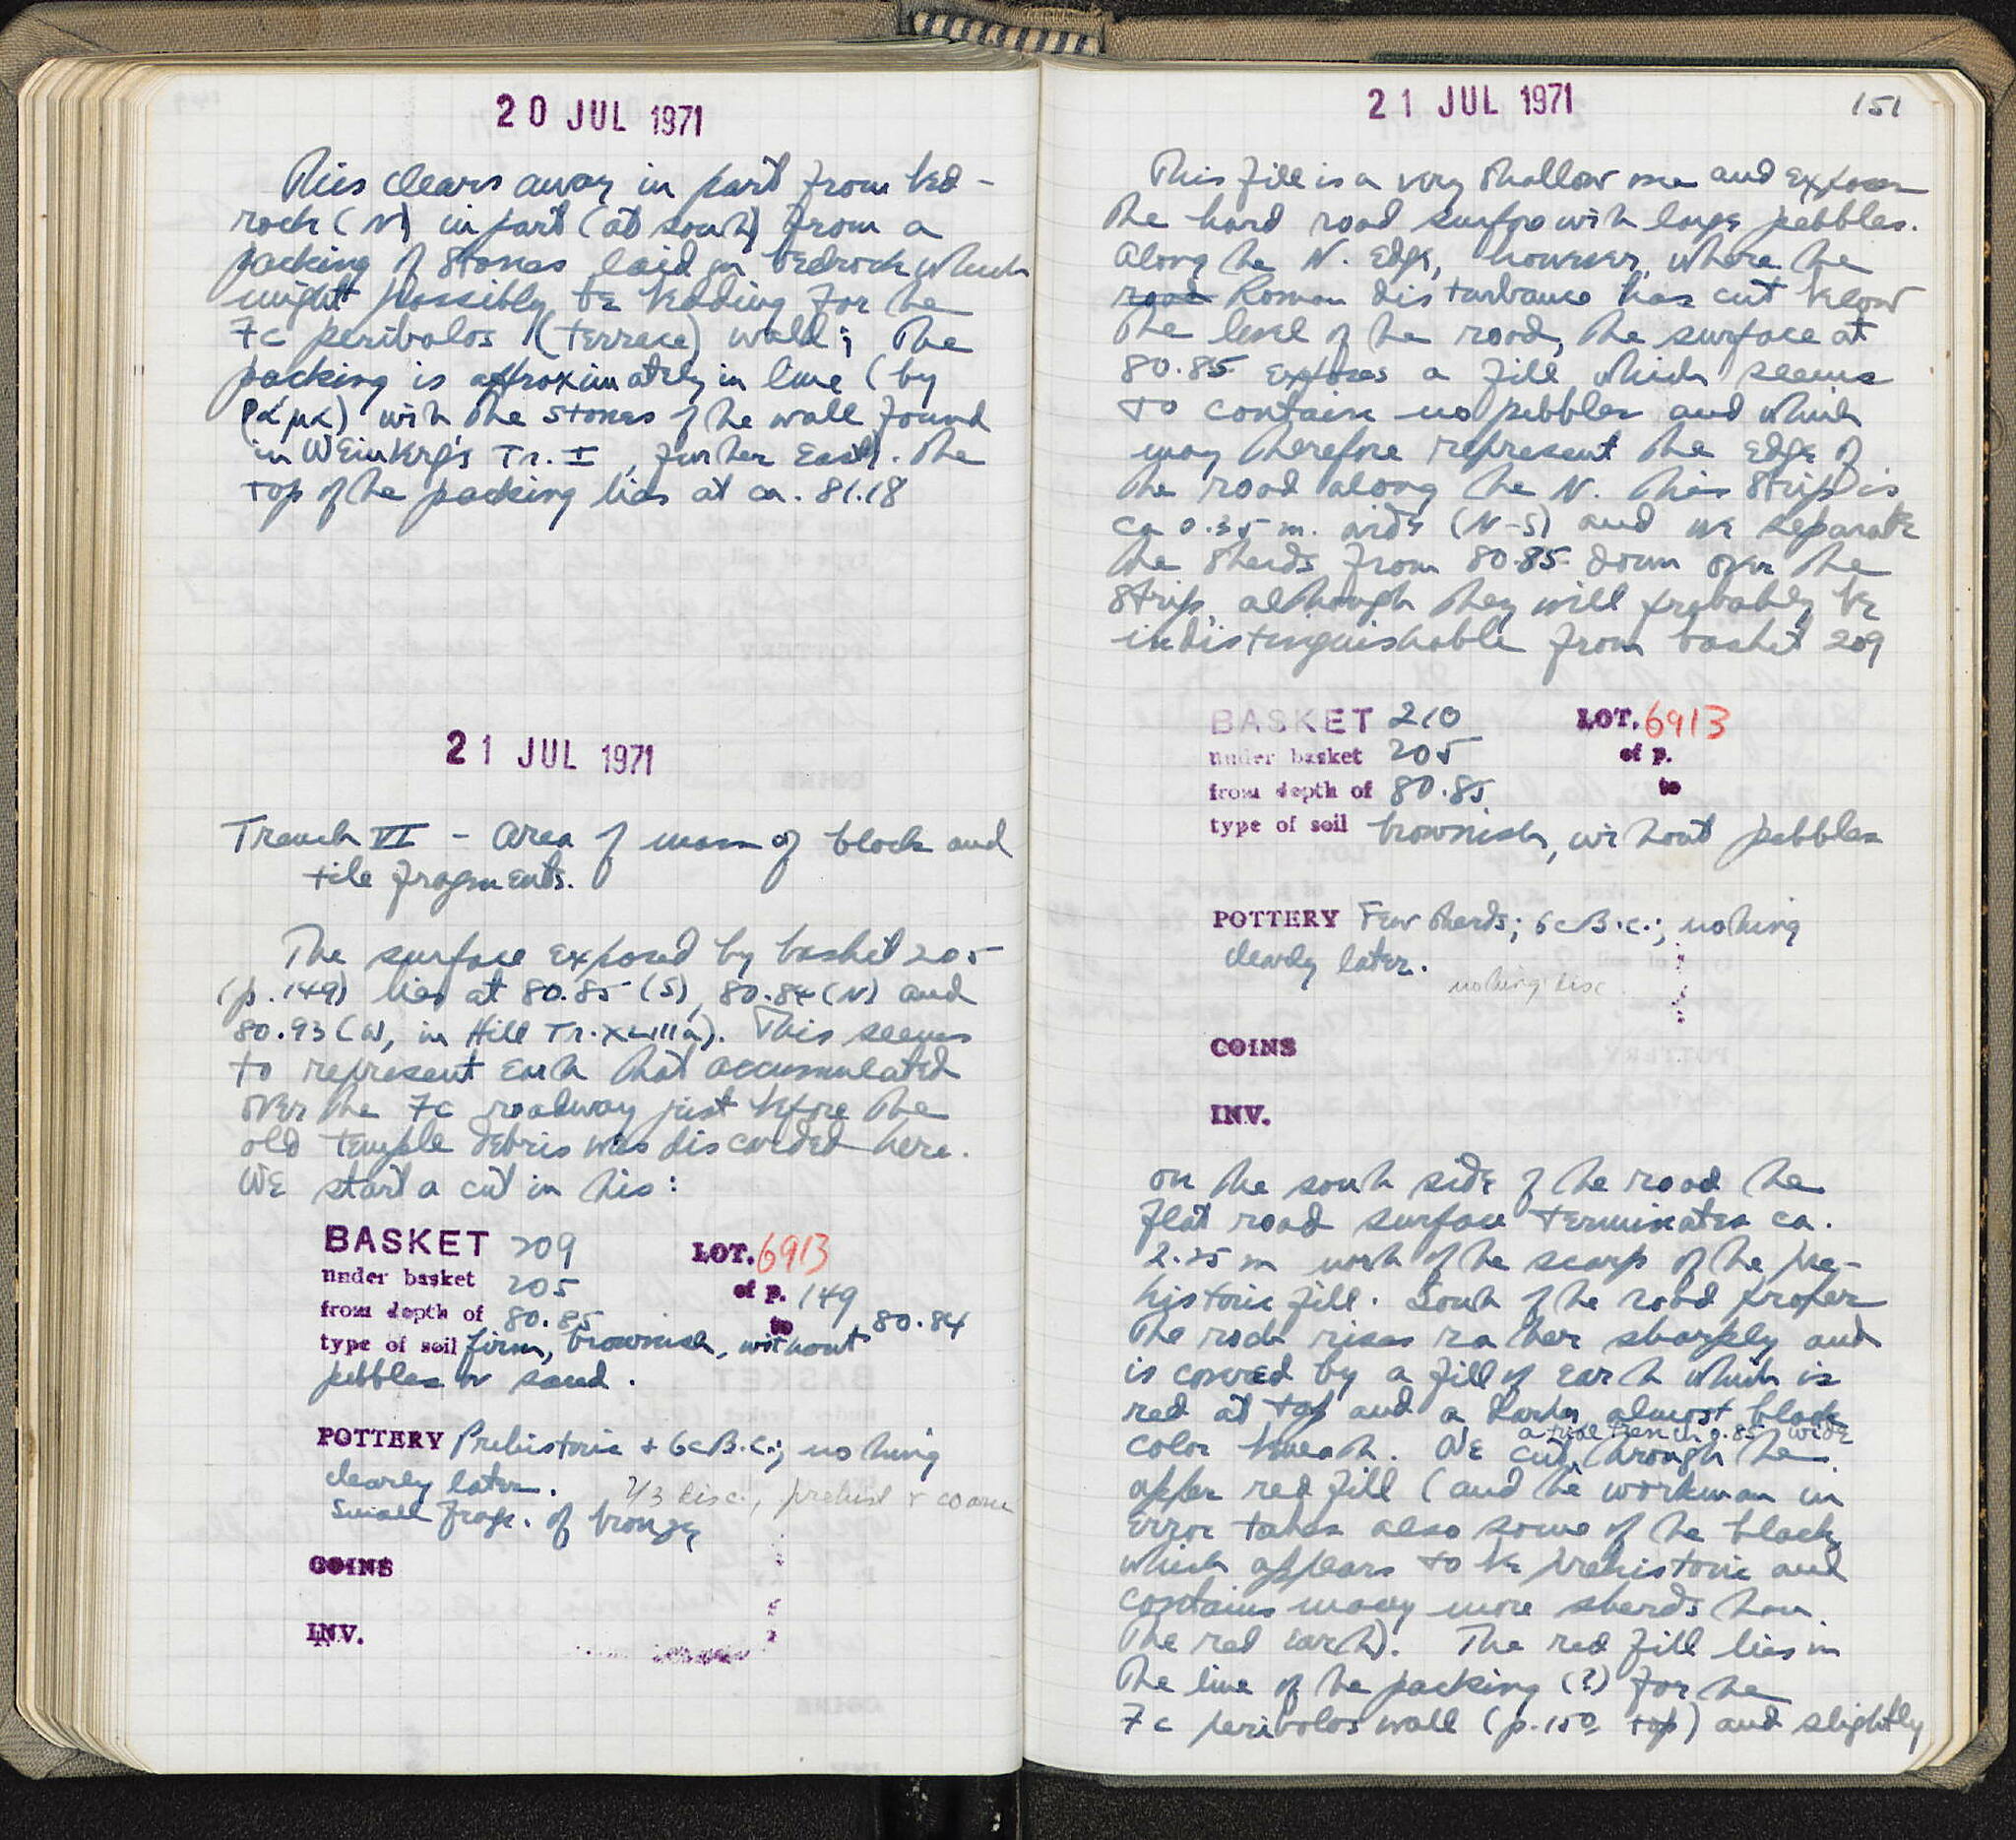 20 JUL 1971
This clears away in part from bed-
rock (N) in part (at south) from a
packing of stones laid on bedrock which
might possibly be bedding for the
7c peribolos (terrace) wall; the
packing is approximately in line (by
ράμμα) with the stones of the wall found
in Weinberg's Tr. I, further East). The
top of the packing lies at ca. 81.18
21 JUL 1971
Trench VI - Area of mass of block and
tile fragments.
The surface exposed by basket 205
(p. 149) lies at 80.85 (S), 80.84 (N) and
80.93 (W, in Hill Tr. XLIIIa). This seems
to represent earth that accumulated
over the 7c roadway just before the
old temple debris was discarded here.
We start a cut in this:
BASKET 209 LOT. 6913
under basket 205 of p. 149
from depth of 80.85 to 80.84
type of soil firm, brownish, without
pebbles or sand.
POTTERY Prehistoric + 6c B.C.; nothing
clearly later. 2/3 disc., prehist + coarse
Small frags. of bronze
COINS
INV.
21 JUL 1971 151
This fill is a very shallow one and exposes
the hard road surface with large pebbles.
Along the N. edge, however, where the
road Roman disturbance has cut below
the level of the road, the surface at
80.85 exposes a fill which seems
to contain no pebbles and which
may therefore represent the edge of
the road along the N. This strip is
ca 0.35 m. wide (N-S) and we separate
the sherds from 80.85 down over the
strip, although they will probably be
indistinguishable from basket 209
BASKET 210 LOT. 6913
under basket 205 of p.
from depth of 80.85 to
type of soil brownish, without pebbles
POTTERY Few sherds; 6c B.C.; nothing
clearly later.
nothing disc.
COINS
INV.
On the south side of the road the
flat road surface terminates ca.
2.25 m north of the scarp of the pre-
historic fill. South of the road proper
the rock rises rather sharply and
is covered by a fill of earth which is
red at top and a darker, almost black
a trial trench 0.85 wide
color beneath. We cut through the
upper red fill (and the workman in
error takes also some of the black
which appears to be prehistoric and
contains many more sherds than
the red earth). The red fill lies in
the line of the packing (?) for the
7c peribolos wall (p. 150 top) and slightly